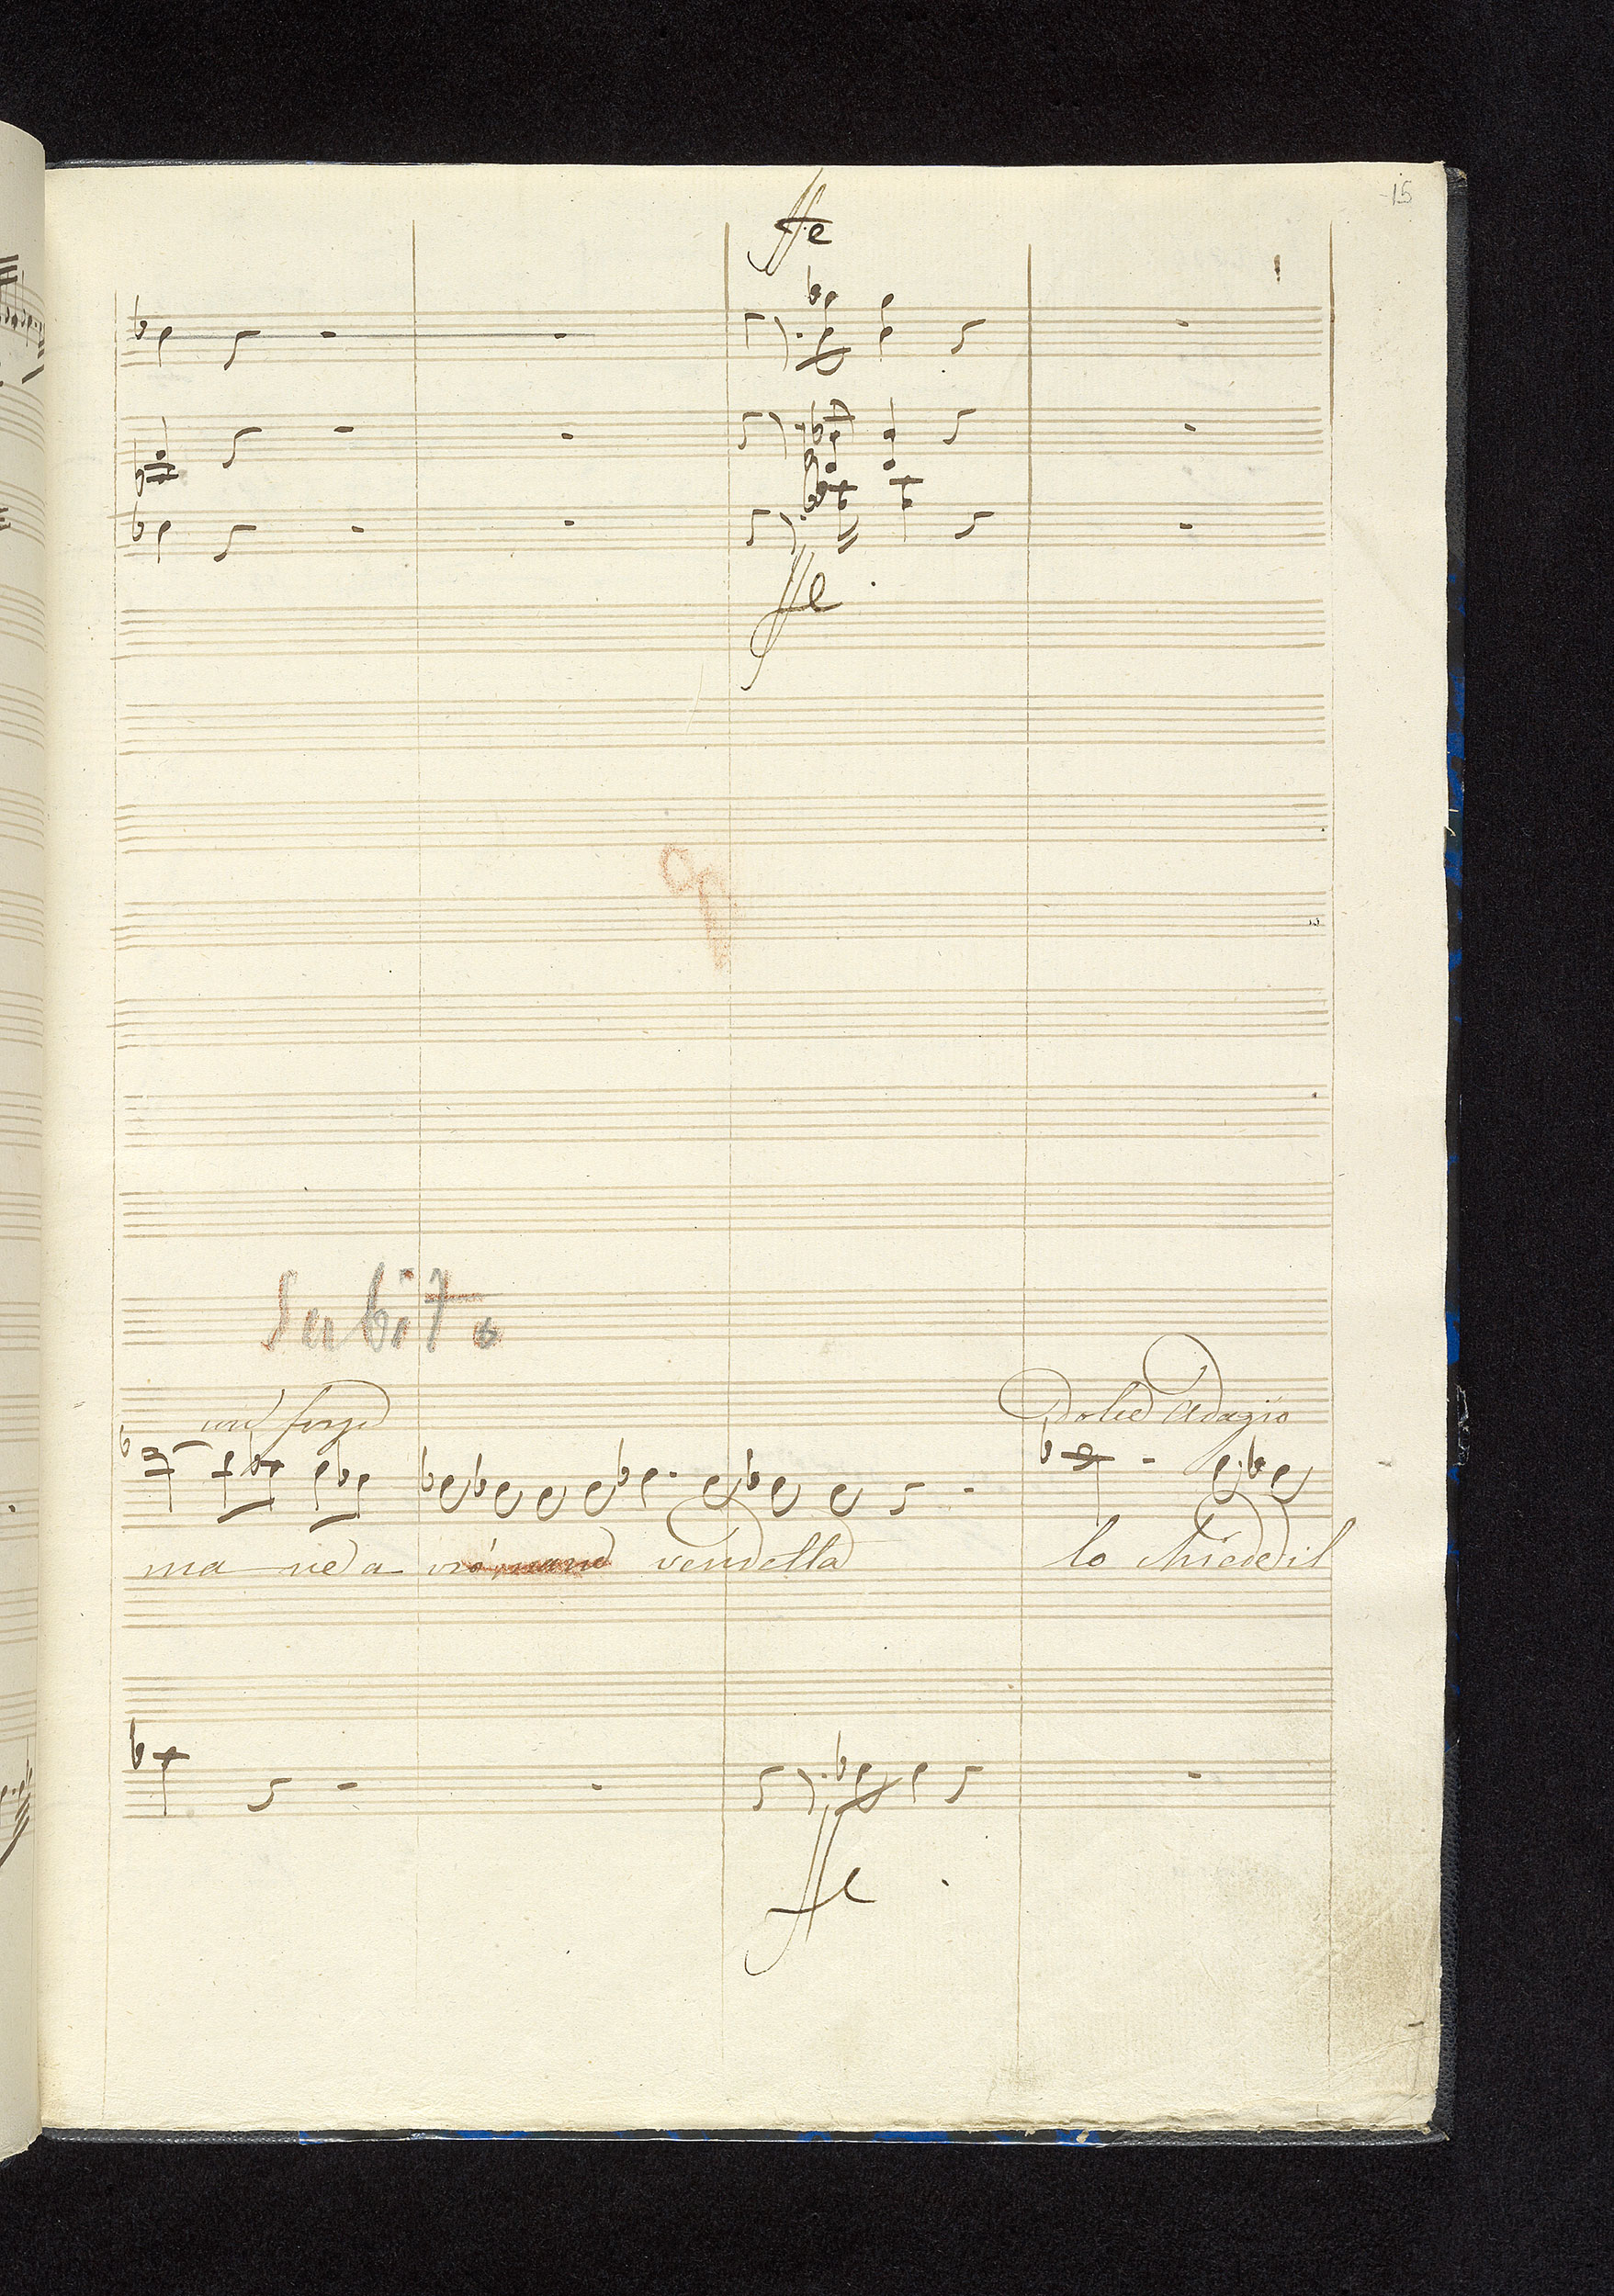 15
ffe
ffe
Subito
con forza
Dolce Adagio
ma ne a vrò vendetta lo chiede il
ffe